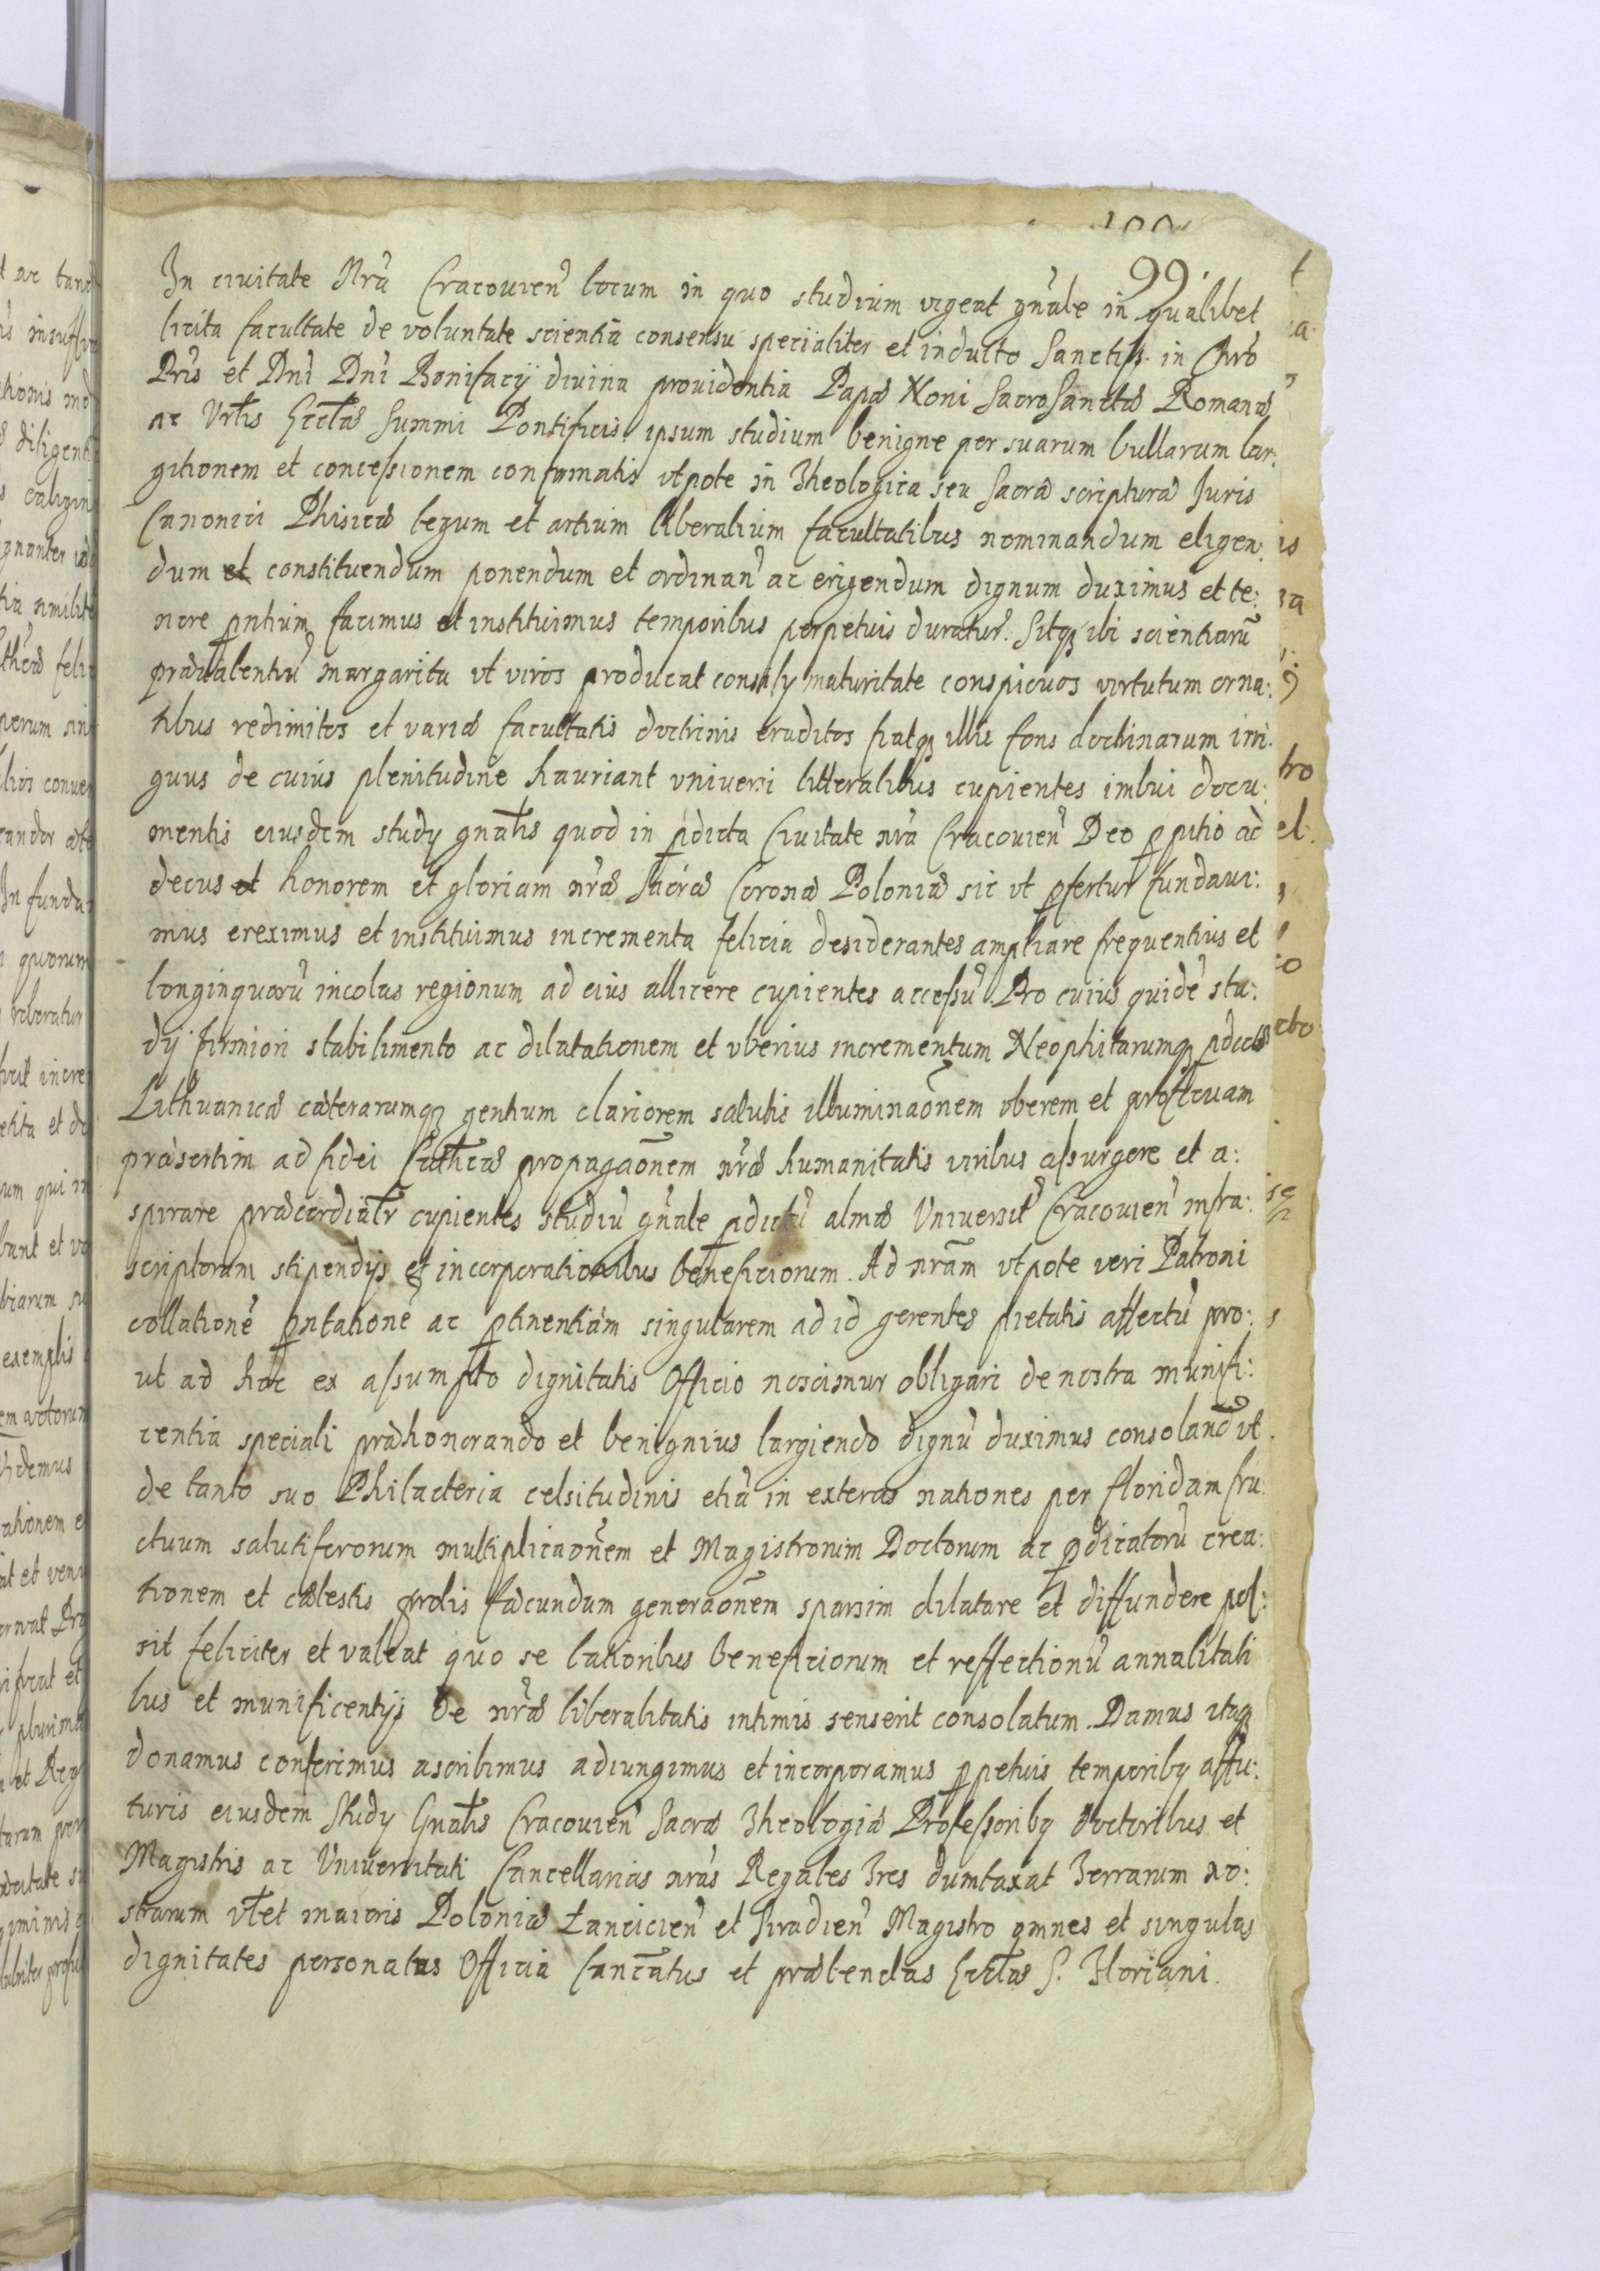 99.
In ciuitate Nrã Cracouien̄ locum in quo studium vigeat gñale in qualibet
licita facultate de voluntate scientiã consensu specialiter et indulto Sanctiss. in Chrō
Pris et Dnī Dnī Bonifacÿ diuina prouidentia Papæ Noni SacroSanctæ Romanæ
ac Vrlis Ecclæ Summi Pontificis ipsum studium benigne per suarum bullarum lar:
gitionem et concessionem confirmatis vtpote in Theologica seu Sacræ scripturæ Juris
Canonici Phisicæ legum et artium liberalium facultatibus nominandum eligen:
dum et constituendum ponendum et ordinan̄ ac erigendum dignum duximus et te:
nore pntium facimus et instituimus temporibus perpetuis duratur̄. Sitq; ibi scientiarū
præualentiū margarita vt viros producat consily maturitate conspicuos virtutum orna:
tibus redimitos et variæ facultatis doctrinis eruditos fiatq; illic fons doctrinarum irri:
guus de cuius plenitudine hauriant vniuersi litteralibus cupientes imbui docu:
mentis eiusdem study gnalis quod in pdicta Ciuitate nrã Cracouien̄ Deo ppitio ad
decus et honorem et gloriam nræ Sacræ Coronæ Poloniæ sic vt pfertur fundaui:
mus ereximus et instituimus incrementa felicia desiderantes ampliare frequentius et
longinquorū incolas regionum ad eius allicere cupientes accessū. Pro cuius quidē stu:
dÿ firmiori stabilimento ac dilatationem et vberius incrementum Neophitarumq; pdictæ
Lithuanicæ cæterarumq; gentium clariorem salutis illuminaōnem vberem et profluam
præsertim ad fidei Catheæ propagaōnem nræ humanitatis viribus assurgere et a:
spirare præcordialr cupientes studiū gñale pdictū almæ Vniuersit̄ Cracouien̄ infra:
scriptorum stipendÿs et incorporationibus beneficiorum. Ad nram vtpote veri Patroni
collationē pntationē ac ptinentiam singularem ad id gerentes pietatis affectū pro:
ut ad hoc ex assumpto dignitatis Officio noscimur obligari de nostra munifi:
centia speciali præhonorando et benignius largiendo dignū duximus consoland̄ vt
de tanto suo Philacteria celsitudinis etiā in exteras nationes per floridam fru
ctuum salutiferorum multiplicaōnem et Magistrorum Doctorum ac pdicatorū crea:
tionem et cælestis prolis fæcundam generaōnem sparsim dilatare et diffundere pos:
sit feliciter et valeat quo se latioribus beneficiorum et reffectionū annalitati
bus et munificentÿs de nræ liberalitatis intimis senserit consolatum. Damus itaq;
donamus conferimus ascribimus adiungimus et incorporamus ppetuis temporibq affu:
turis eiusdem Study Gnalis Cracouien̄ Sacræ Theologiæ Professoribq Doctoribus et
Magistris ac Vniuersitati Cancellarias nras Regales Tres dumtaxat Terrarum no:
strarum vtlet maioris Poloniæ Łancicien̄ et Siradien̄ Magistro omnes et singulas
dignitates personatus Officia Canc̄atus et præbendas Ecclæ S. Floriani.